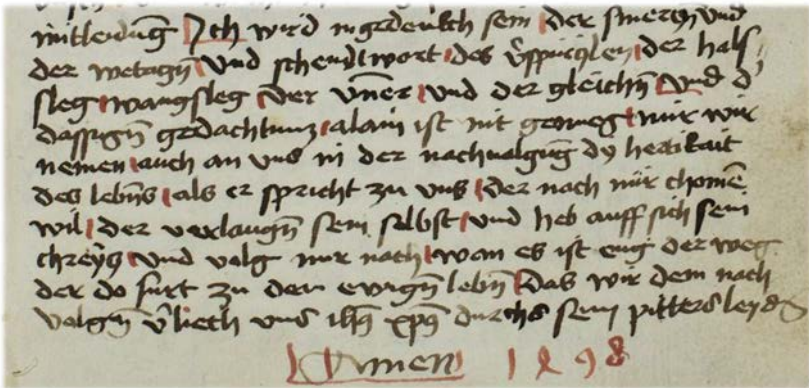 mitleidu̅g Ich wird ingedenkch sein der smerczn̅ und
der wetagn̅ und scheudtwort des v̓spürczlen der hals
sleg wangsleg der vn̅er und der gleichn̅ und d̓
dassign̅ gedachtnuz alain ist nit genueg nur wir
nemen auch an uns in der nachuolgu̅g dy hertikait
des lebn̅s als er spricht zu uns der nach mir chome̅
wil der verlaugn̅ sein selbst und heb auff sich sein
chreẅcz und volg mir nach wan es ist eng der weg
der do furt zu dem ewign̅ lebn̅ das wir dem nach
volgn̅ v̓liech uns ih̅s xp̅s durchs sein pitters leyden
Amen 1498